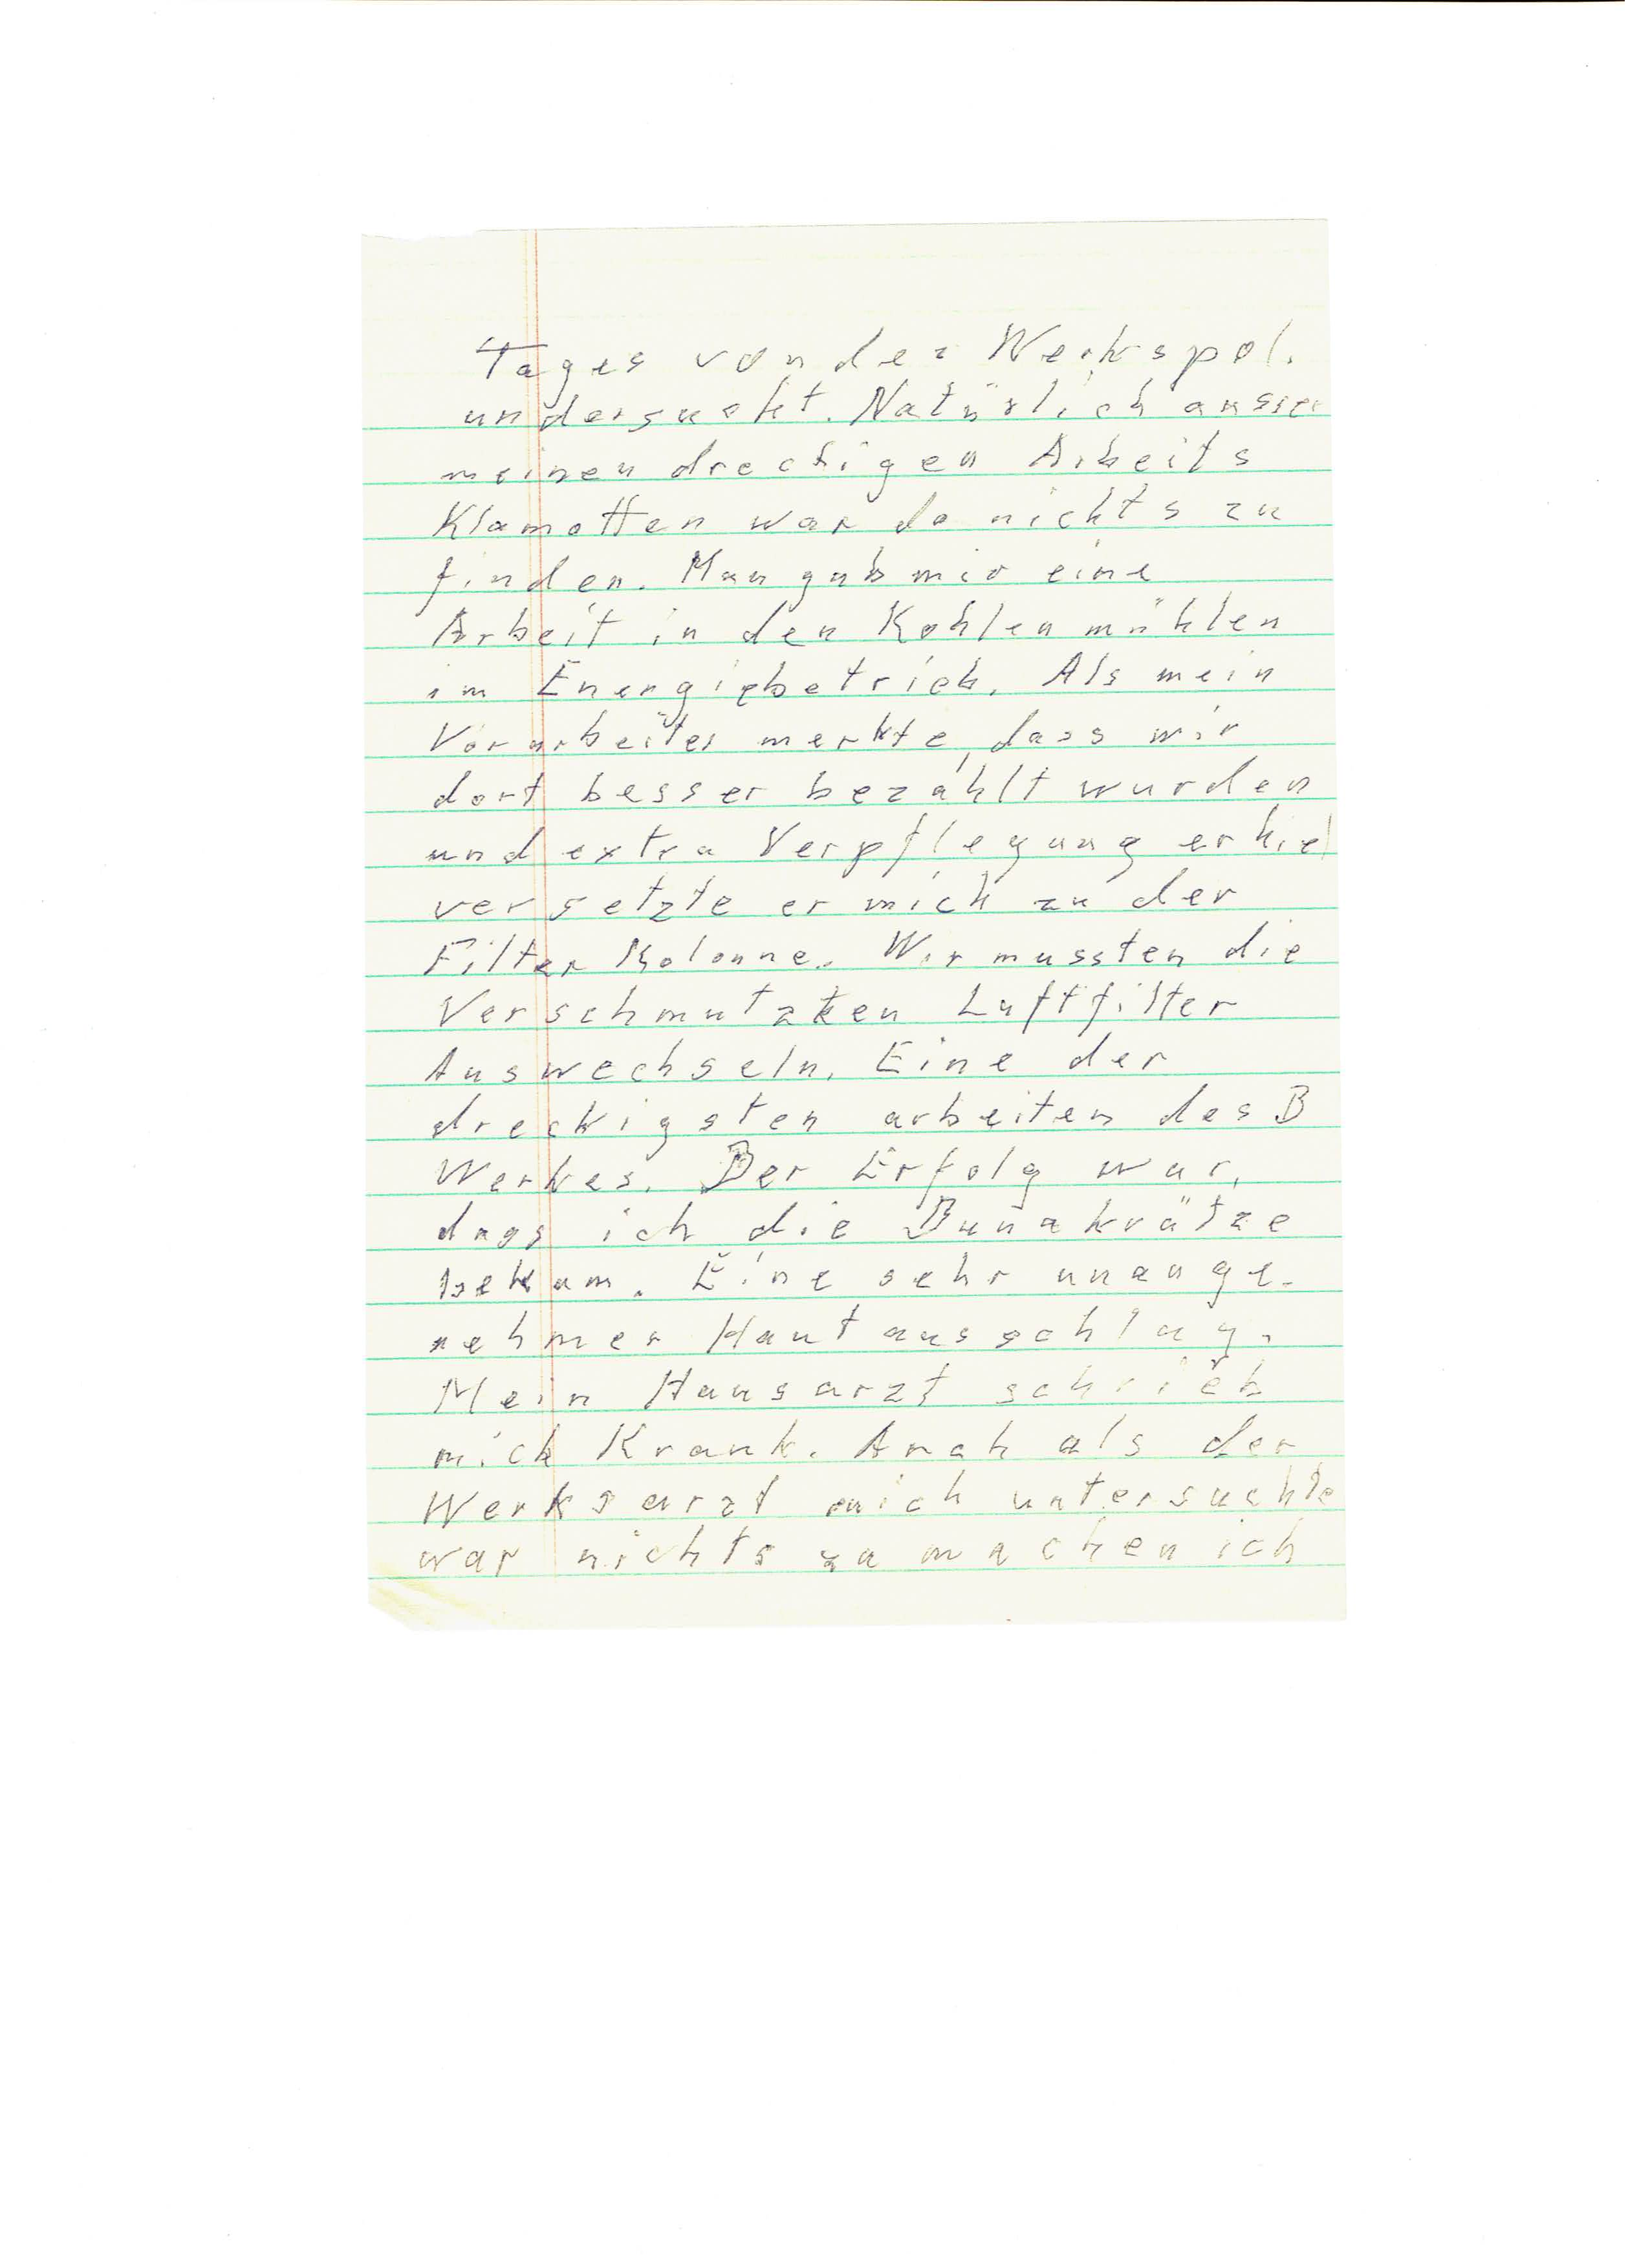 Tages von der Werkspol.
undersucht. Natürlich ausser
meinen dreckigen Arbeits
Klamotten war da nichts zu
finden. Man gab mir eine
Arbeit in den Kohlenmühlen
im Energiebetrieb. Als mein
Vorarbeiter merkte, dass wir
dort besser bezahlt wurden
und extra Verpflegung erhiel
versetzte er mich zu der
Filter Kolonne. Wir mussten die
Verschmutzten Luftfilter
Auswechseln. Eine der
dreckigsten arbeiten des B
Werkes. Der Erfolg war,
dass ich die Bunakrätze
bekam. Eine sehr unange-
nehmer Hautausschlag.
Mein Hausarzt schrieb
mich Krank. Auch als der
Werksarzt mich untersuchte
war nichts zu machen ich